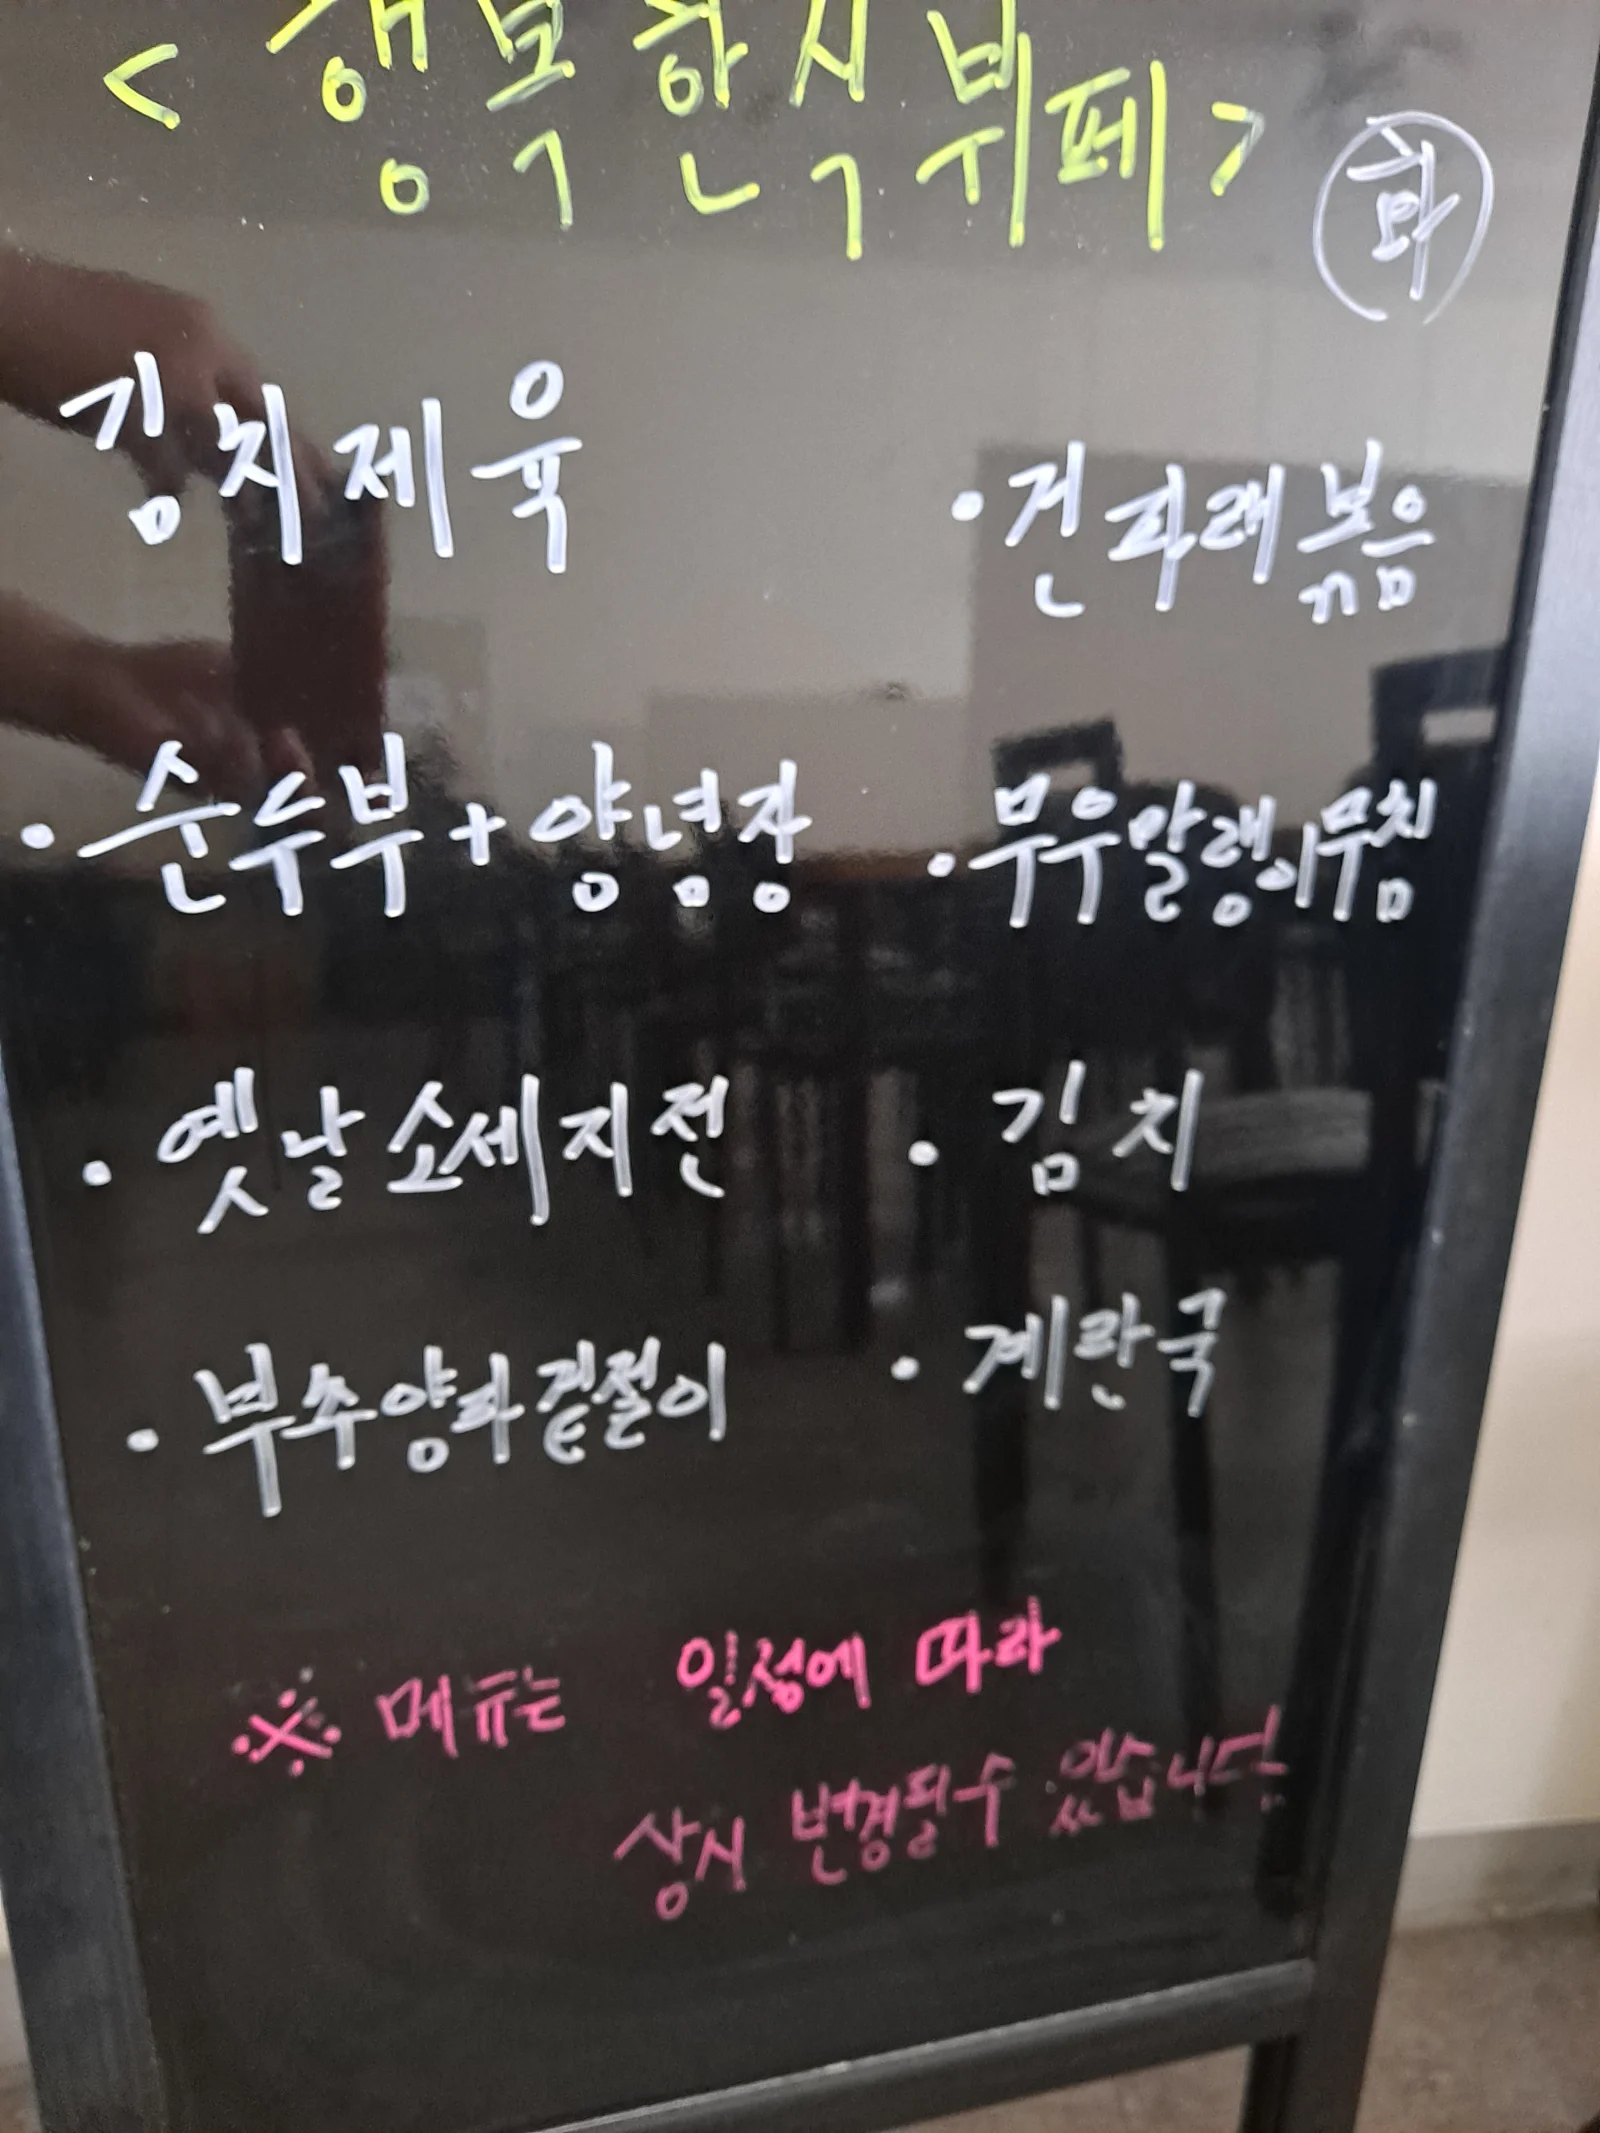 <행복한식뷔페>
화
김치제육
· 건파래볶음
· 순두부+양념장
· 무우말랭이무침
· 옛날소세지전
· 김치
· 부추양파겉절이
· 계란국
※ 메뉴는 일정에 따라
상시 변경될수 있습니다.